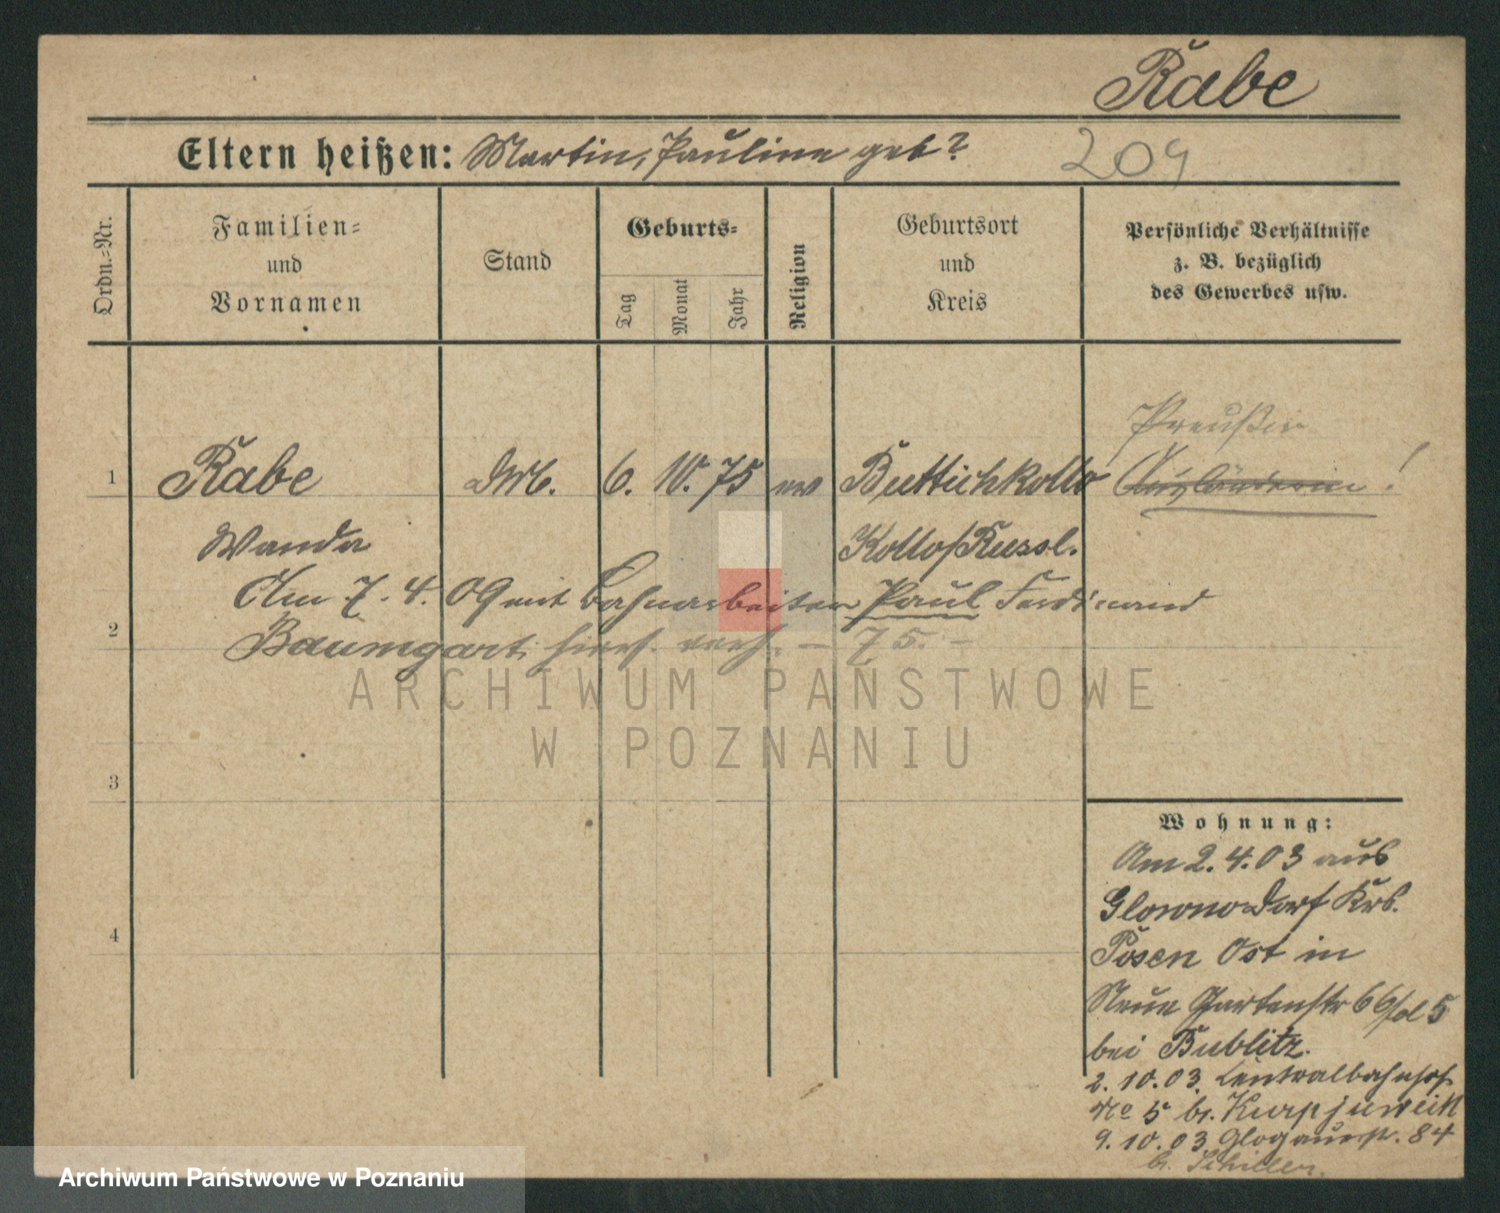 Rabe
Eltern heißen: Martin, Pauline geb?
209
Ordn.-Nr.
Familien-
und
Vornamen
Stand
Geburts-
Tag
Monat
Jahr
Religion
Geburtsort
und
Kreis
Persönliche Verhältnisse
z. B. bezüglich
des Gewerbes usw.
Preußin
1 Rabe 6. 10. 75 ev Buttichkollo Ausländerin!
Wanda Kollo/Russl.
Am 7. 4. 09 mit Bahnarbeiter Paul Ferdinand
2
Baumgart hies. verh. – 75. –
ARCHIWUM PAŃSTWOWE
W POZNANIU
3
Wohnung:
Am 2. 4. 03 aus
Glownodorf Krs.
4
Posen Ost in
Neue Gartenstr 66 5
bei Bublitz.
2. 10. 03. Centralbahnhof
No 5 b.
9. 10. 03 Glogauerstr. 84
b. Schiller.
Archiwum Państwowe w Poznaniu